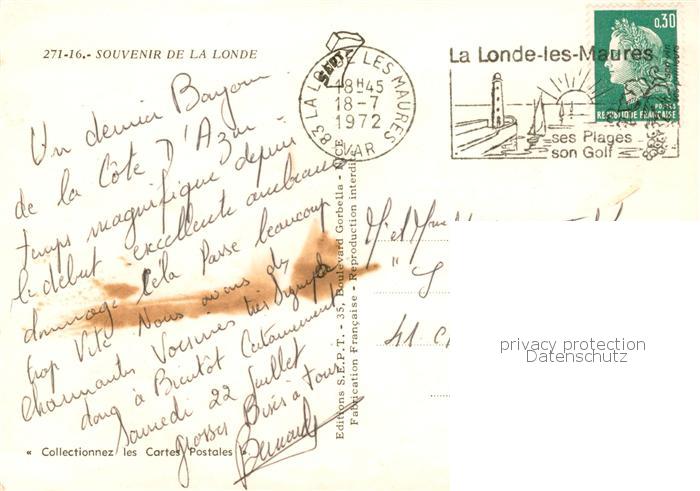 271-16.- SOUVENIR DE LA LONDE
Un dernier Bonjour
de la Côte D'Azur
temps magnifique depuis
le début excellente ambiance
dommage Cela Passe beaucoup
trop Vite Nous avons de
Charmantes Voisines très Sympa
donc à Bientôt Certainement
Samedi 22 Juillet
grosses Bises à tous
Bernard
« Collectionnez les Cartes Postales ».
Editions S.E.P.T. - 35, Boulevard Gorbella - NICE
Fabrication Française - Reproduction interdite
83 LA LONDE LES MAURES
18H45
18-7
1972
VAR
SEPT
La Londe-les-Maures
ses Plages
son Golf
0,30
POSTES
REPUBLIQUE FRANÇAISE
M et Mme
41
privacy protection
Datenschutz